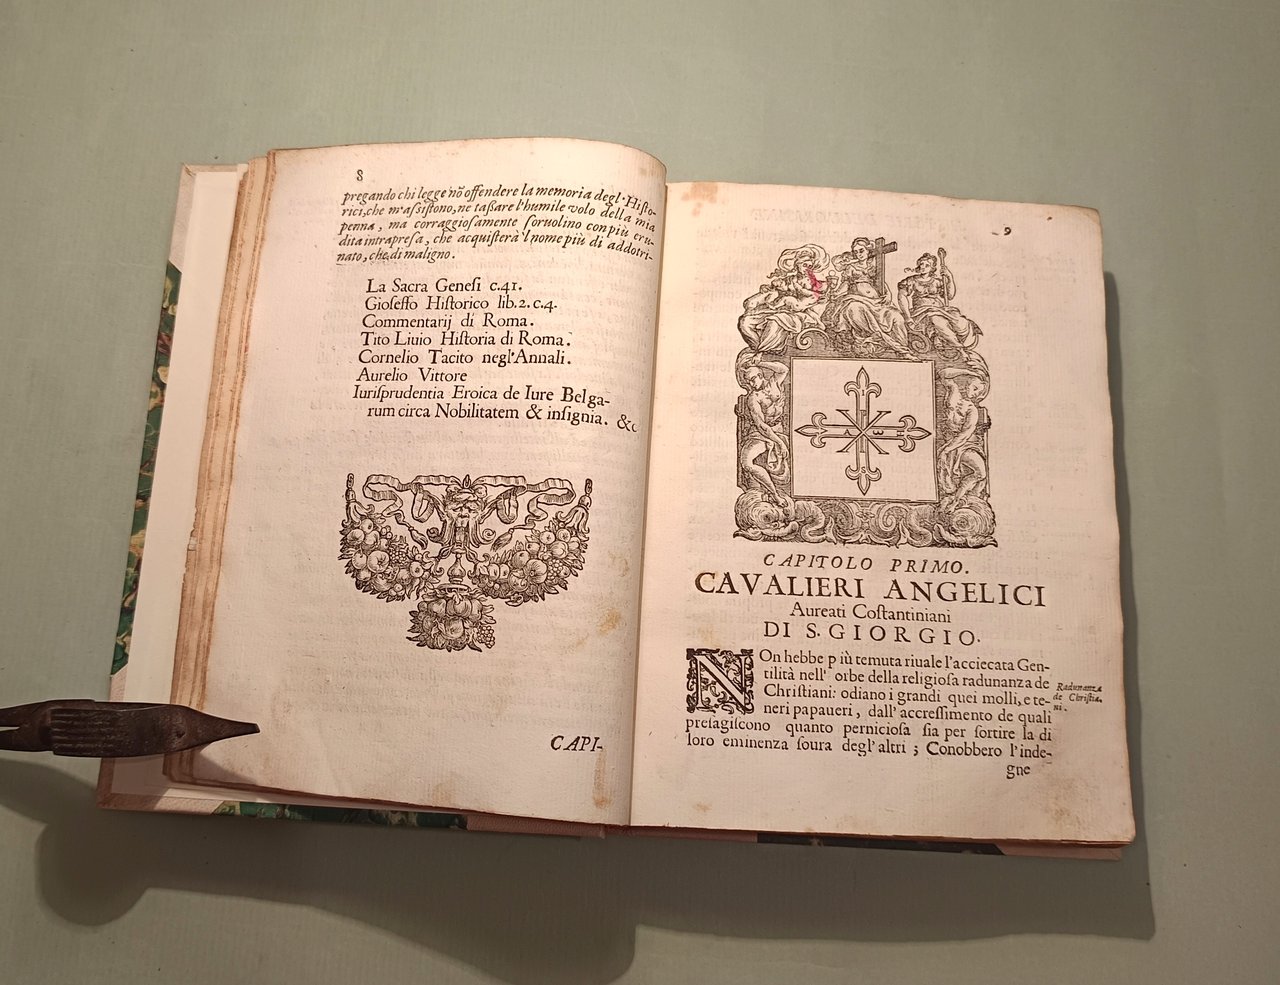 8
pregando chi legge nō offendere la memoria degl'Histo-
rici, che m'assistono, ne taßare l'humile volo della mia
penna, ma corraggiosamente soruolino con più eru-
dita intrapresa, che acquisterà 'l nome più di addotri-
nato, che di maligno.
La Sacra Genesi c.41.
Gioseffo Historico lib.2.c.4.
Commentarij di Roma.
Tito Liuio Historia di Roma.
Cornelio Tacito negl'Annali.
Aurelio Vittore
Iurisprudentia Eroica de Iure Belga-
rum circa Nobilitatem & insignia. &c
CAPI-
9
A ω
CAPITOLO PRIMO.
CAVALIERI ANGELICI
Aureati Costantiniani
DI S. GIORGIO.
NOn hebbe più temuta riuale l'acciecata Gen-
tilità nell' orbe della religiosa radunanza de
Christiani: odiano i grandi quei molli, e te-
neri papaueri, dall' accressimento de quali
presagiscono quanto perniciosa sia per sortire la di
loro eminenza soura degl'altri ; Conobbero l'inde-
gne
Radunanza
de Christia-
ni.